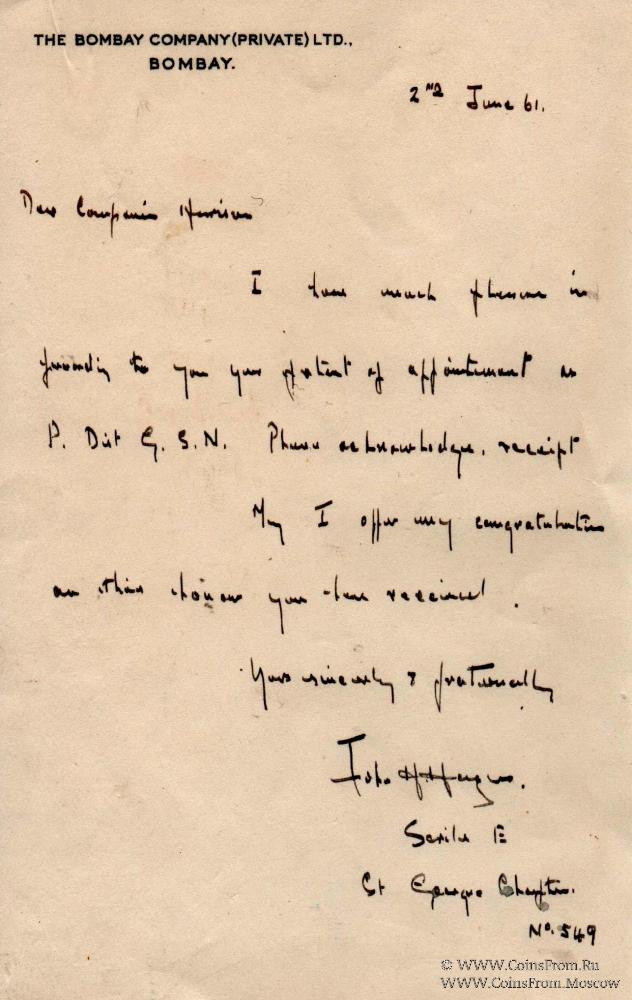 THE BOMBAY COMPANY (PRIVATE) LTD.,
BOMBAY.
2nd June 61.
Dear Companion Harrison
I have much pleasure in
forwarding to you your patent of appointment as
P. Dist G. S. N. Please acknowledge receipt
May I offer my congratulations
on this honour you have received.
Yours sincerely & fraternally
Scribe E
St George Chapter.
No. 549
© WWW.CoinsFrom.Ru
WWW.CoinsFrom.Moscow